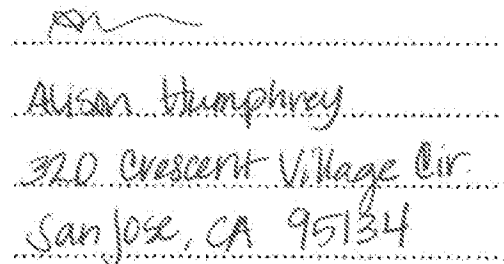 Alison Humphrey
320 Crescent Village Cir.
San Jose, CA 95134